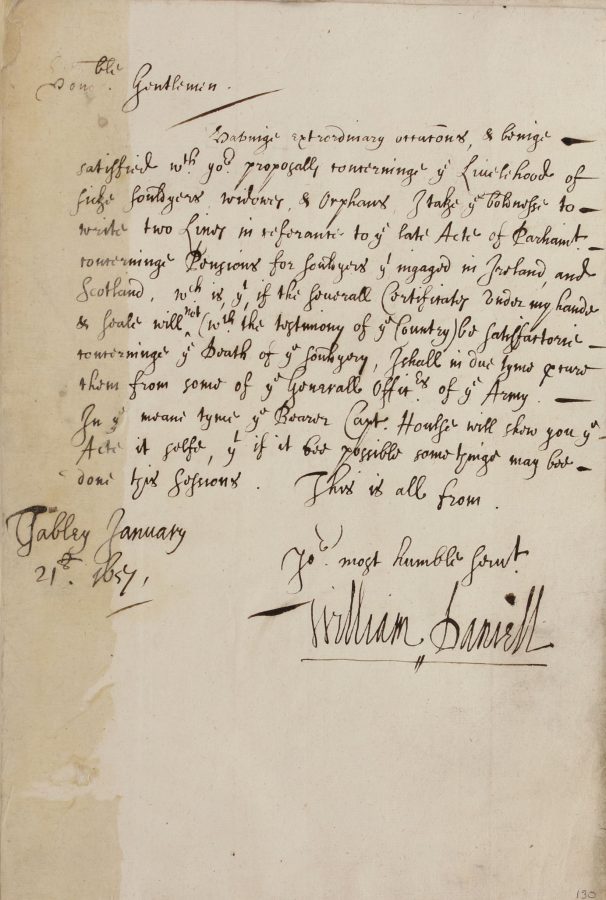 Hono:ble Gentlemen.
Haveinge extrordinary occacons, & beinge
satisfied wch yor proposalls concerninge ye Livelehood of
sicke souldyers, widowes, & Orphans, I take ye boldnesse to
write two Lines in referance to ye late Acte of Parliamt.
concerninge Pensions for souldyers yt ingaged in Ireland, and
Scotland, wch is, yt, if the severall Certificates under my hande
& seale will not (wth the testimony of ye Country) be satisfactorie
concerninge ye Death of ye souldyers, I shall in due tyme pcure
them from some of ye Generall Officers of ye Army.
In ye meane tyme ye Bearer Capt. Houlse will shew you ye
Acte it selfe, yt if it bee possible some thinge may bee
done this sessions. This is all from.
Tabley January
21th. 1657,
Yor most humble servt.
William Daniell
130